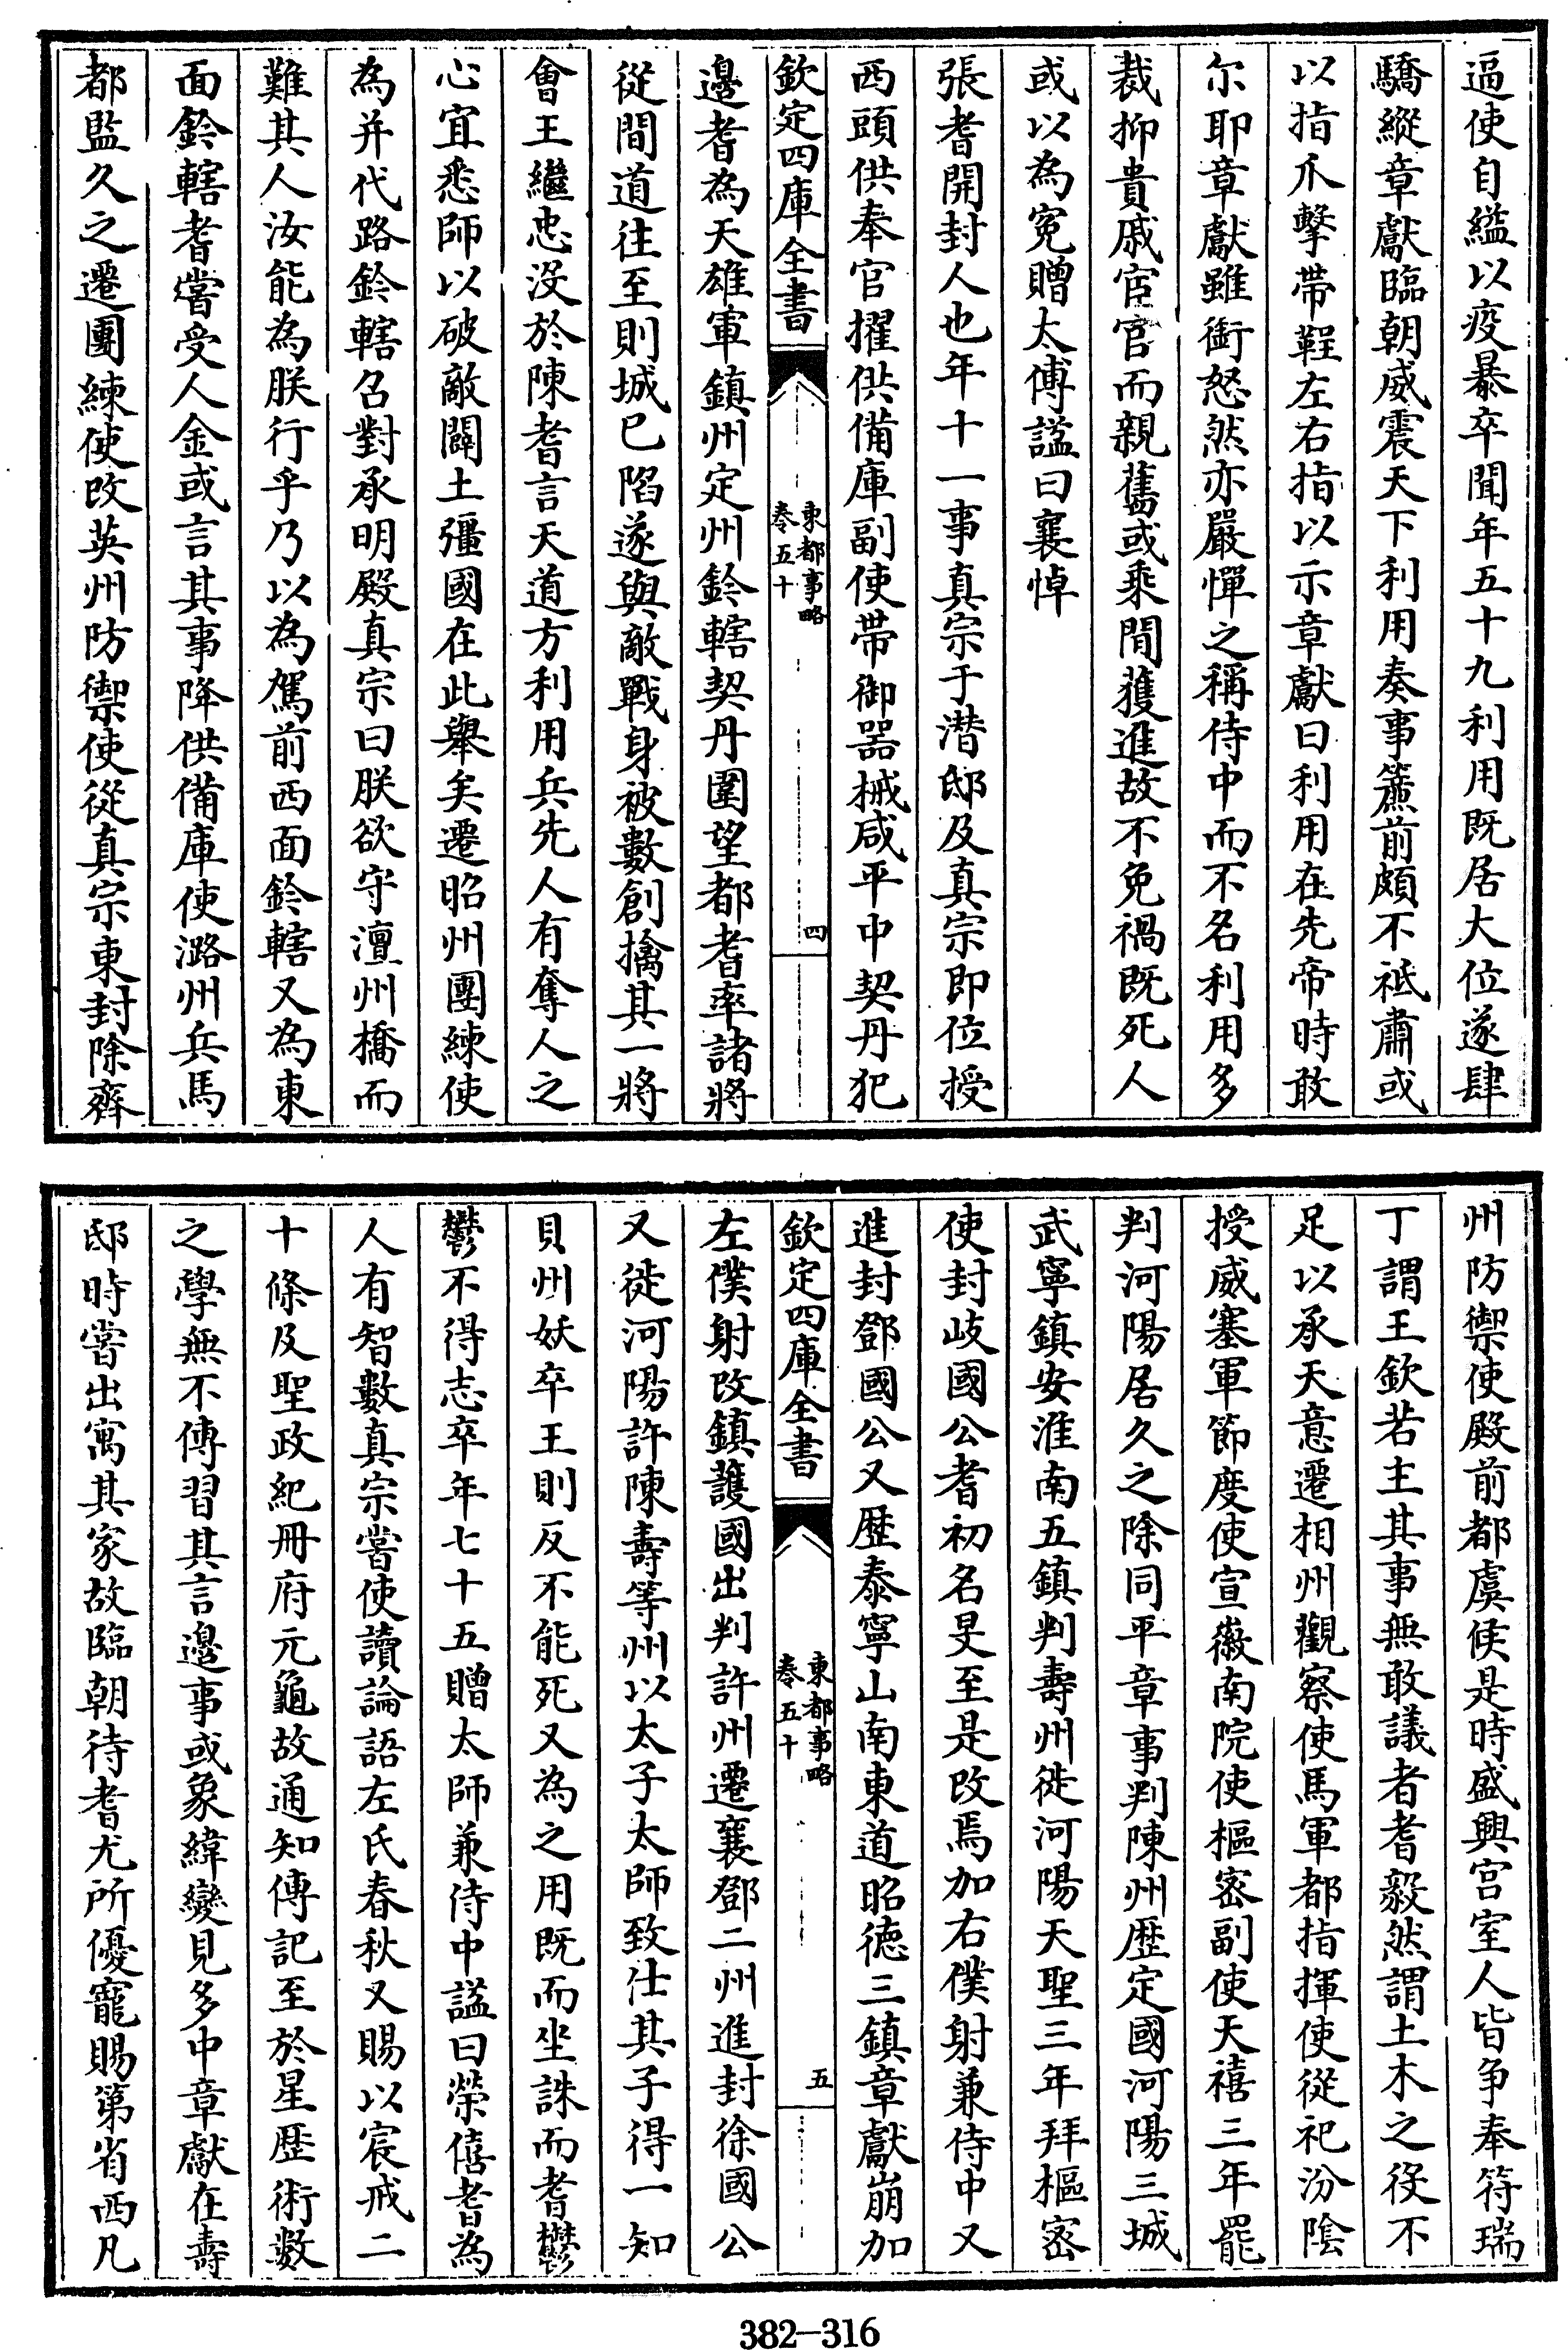 逼使自縊以疫暴卒聞年五十九利用既居大位遂肆
驕縱章獻臨朝威震天下利用奏事簾前頗不祗肅或
以指爪擊帶鞓左右指以示章獻曰利用在先帝時敢
尔耶章獻雖銜怒然亦嚴憚之稱侍中而不名利用多
裁抑貴戚宦官而親舊或乘間獲進故不免禍既死人
或以為寃贈太傅諡曰襄悼
張耆開封人也年十一事真宗于潜邸及真宗即位授
西頭供奉官擢供備庫副使帶御器械咸平中契丹犯
欽定四庫全書
東都事略
卷五十
四
邊耆為天雄軍鎮州定州鈐轄契丹圍望都耆率諸將
從間道往至則城已陷遂與敵戰身被數創擒其一將
會王繼忠没於陳耆言天道方利用兵先人有奪人之
心宜悉師以破敵闢土疆國在此舉矣遷昭州團練使
為并代路鈐轄召對承明殿真宗曰朕欲守澶州橋而
難其人汝能為朕行乎乃以為駕前西面鈐轄又為東
面鈐轄耆嘗受人金或言其事降供備庫使潞州兵馬
都監久之遷團練使改英州防禦使從真宗東封除齊
州防禦使殿前都虞候是時盛興宫室人皆争奉符瑞
丁謂王欽若主其事無敢議者耆毅然謂土木之役不
足以承天意遷相州觀察使馬軍都指揮使從祀汾陰
授威塞軍節度使宣徽南院使樞宻副使天禧三年罷
判河陽居久之除同平章事判陳州歴定國河陽三城
武寧鎮安淮南五鎮判壽州徙河陽天聖三年拜樞宻
使封岐國公耆初名旻至是改焉加右僕射兼侍中又
進封鄧國公又歴泰寧山南東道昭徳三鎮章獻崩加
欽定四庫全書
東都事略
卷五十
五
左僕射改鎮護國出判許州遷襄鄧二州進封徐國公
又徙河陽許陳壽等州以太子太師致仕其子得一知
貝州妖卒王則反不能死又為之用既而坐誅而耆鬱
鬱不得志卒年七十五贈太師兼侍中諡曰榮僖耆為
人有智數真宗嘗使讀論語左氏春秋又賜以宸戒二
十條及聖政紀冊府元龜故通知傳記至於星歴術數
之學無不傳習其言邊事或象緯變見多中章獻在壽
邸時嘗出寓其家故臨朝待耆尤所優寵賜第省西凡
382-316